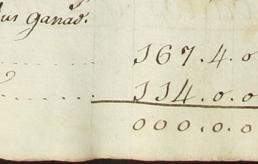 ganad.
167.4.0
114.0.0
000.0.0